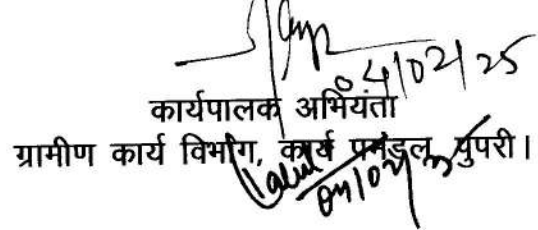 04/02/25
कार्यपालक अभियंता
ग्रामीण कार्य विभाग, कार्य प्रमंडल, पुपरी।
04/02/25